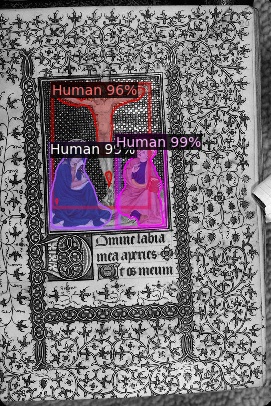 Human 96%
Human 99%
Human
Domine labia
mea aperies
Et os meum